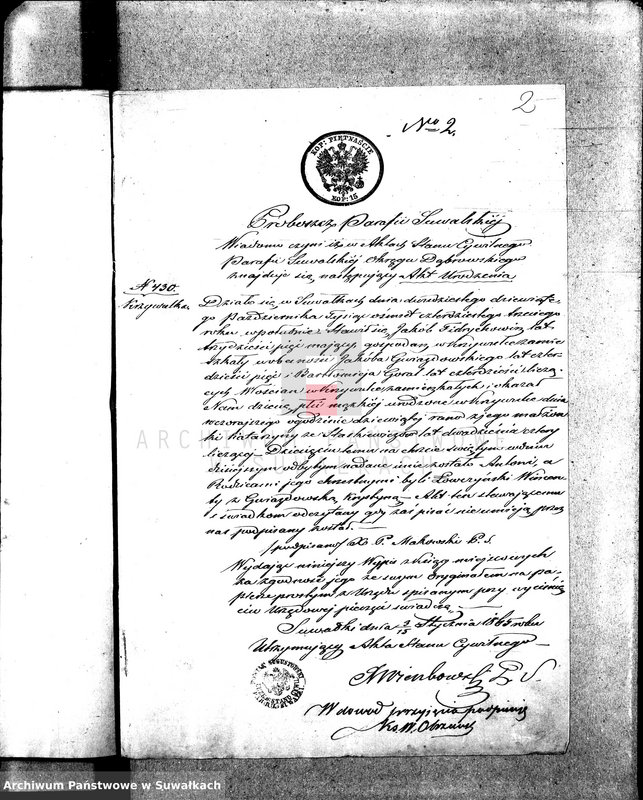 2
No 2.
KOP: PIĘTNAŚCIE
KOP: 15
Proboszcz Parafii Suwalskiéj
Wiadomo czyni iż w Aktach Stanu Cywilnego
Parafii Suwalskiéj Okręgu Dąbrowskiego
znajduje się następujący Akt Urodzenia
No 430.
Krzywulka.
Działo się w Suwałkach dnia dwudziestego dziewiąte-
go Października Tysiąc ośmset czterdziestego trzeciego
roku, w południe. Stawił się Jakób lat
trzydzieści pięć mający gospodarz w Krzywulce zamie-
szkały w obecności Jakóba Gwiazdowskiego lat czter-
dzieści pięć i Bartłomieja Góral lat czterdzieści liczą-
cych Włościan w Krzywulce zamieszkałych, i okazał
Nam dziecię płci męzkiéj urodzone w Krzywulce dnia
wczorajszego o godzinie dziewiątéj rano z jego małżon-
ki Katarzyny ze Staśkiewiczów lat dwadzieścia cztery
liczącéj. Dziecięciu temu na chrzcie świętym w dniu
dzisiejszym odbytym nadane imie zostało Antoni, a
Rodzicami jego chrzestnymi byli Wincen-
ty z Gwiazdowską Krystyną. Akt ten stawającemu
i świadkom odczytany gdy zaś pisać nie umieją przez
nas podpisany został.
/podpisano/ X. P. Makowski P. S.
Wydając niniejszy Wypis z Xiąg miejscowych
za zgodność jego ze swym Oryginałem na pa-
pierze prostym z Urzędu spisanym przy wyciśnię-
ciu Urzędowéj pieczęci świadczę.
Suwałki dnia 3/15 Stycznia 1865 roku
Utrzymujący Akta Stanu Cywilnego
W dowód przyjęcia podpisuję
ARCHIWUM PAŃSTWOWE
W SUWAŁKACH
Archiwum Państwowe w Suwałkach